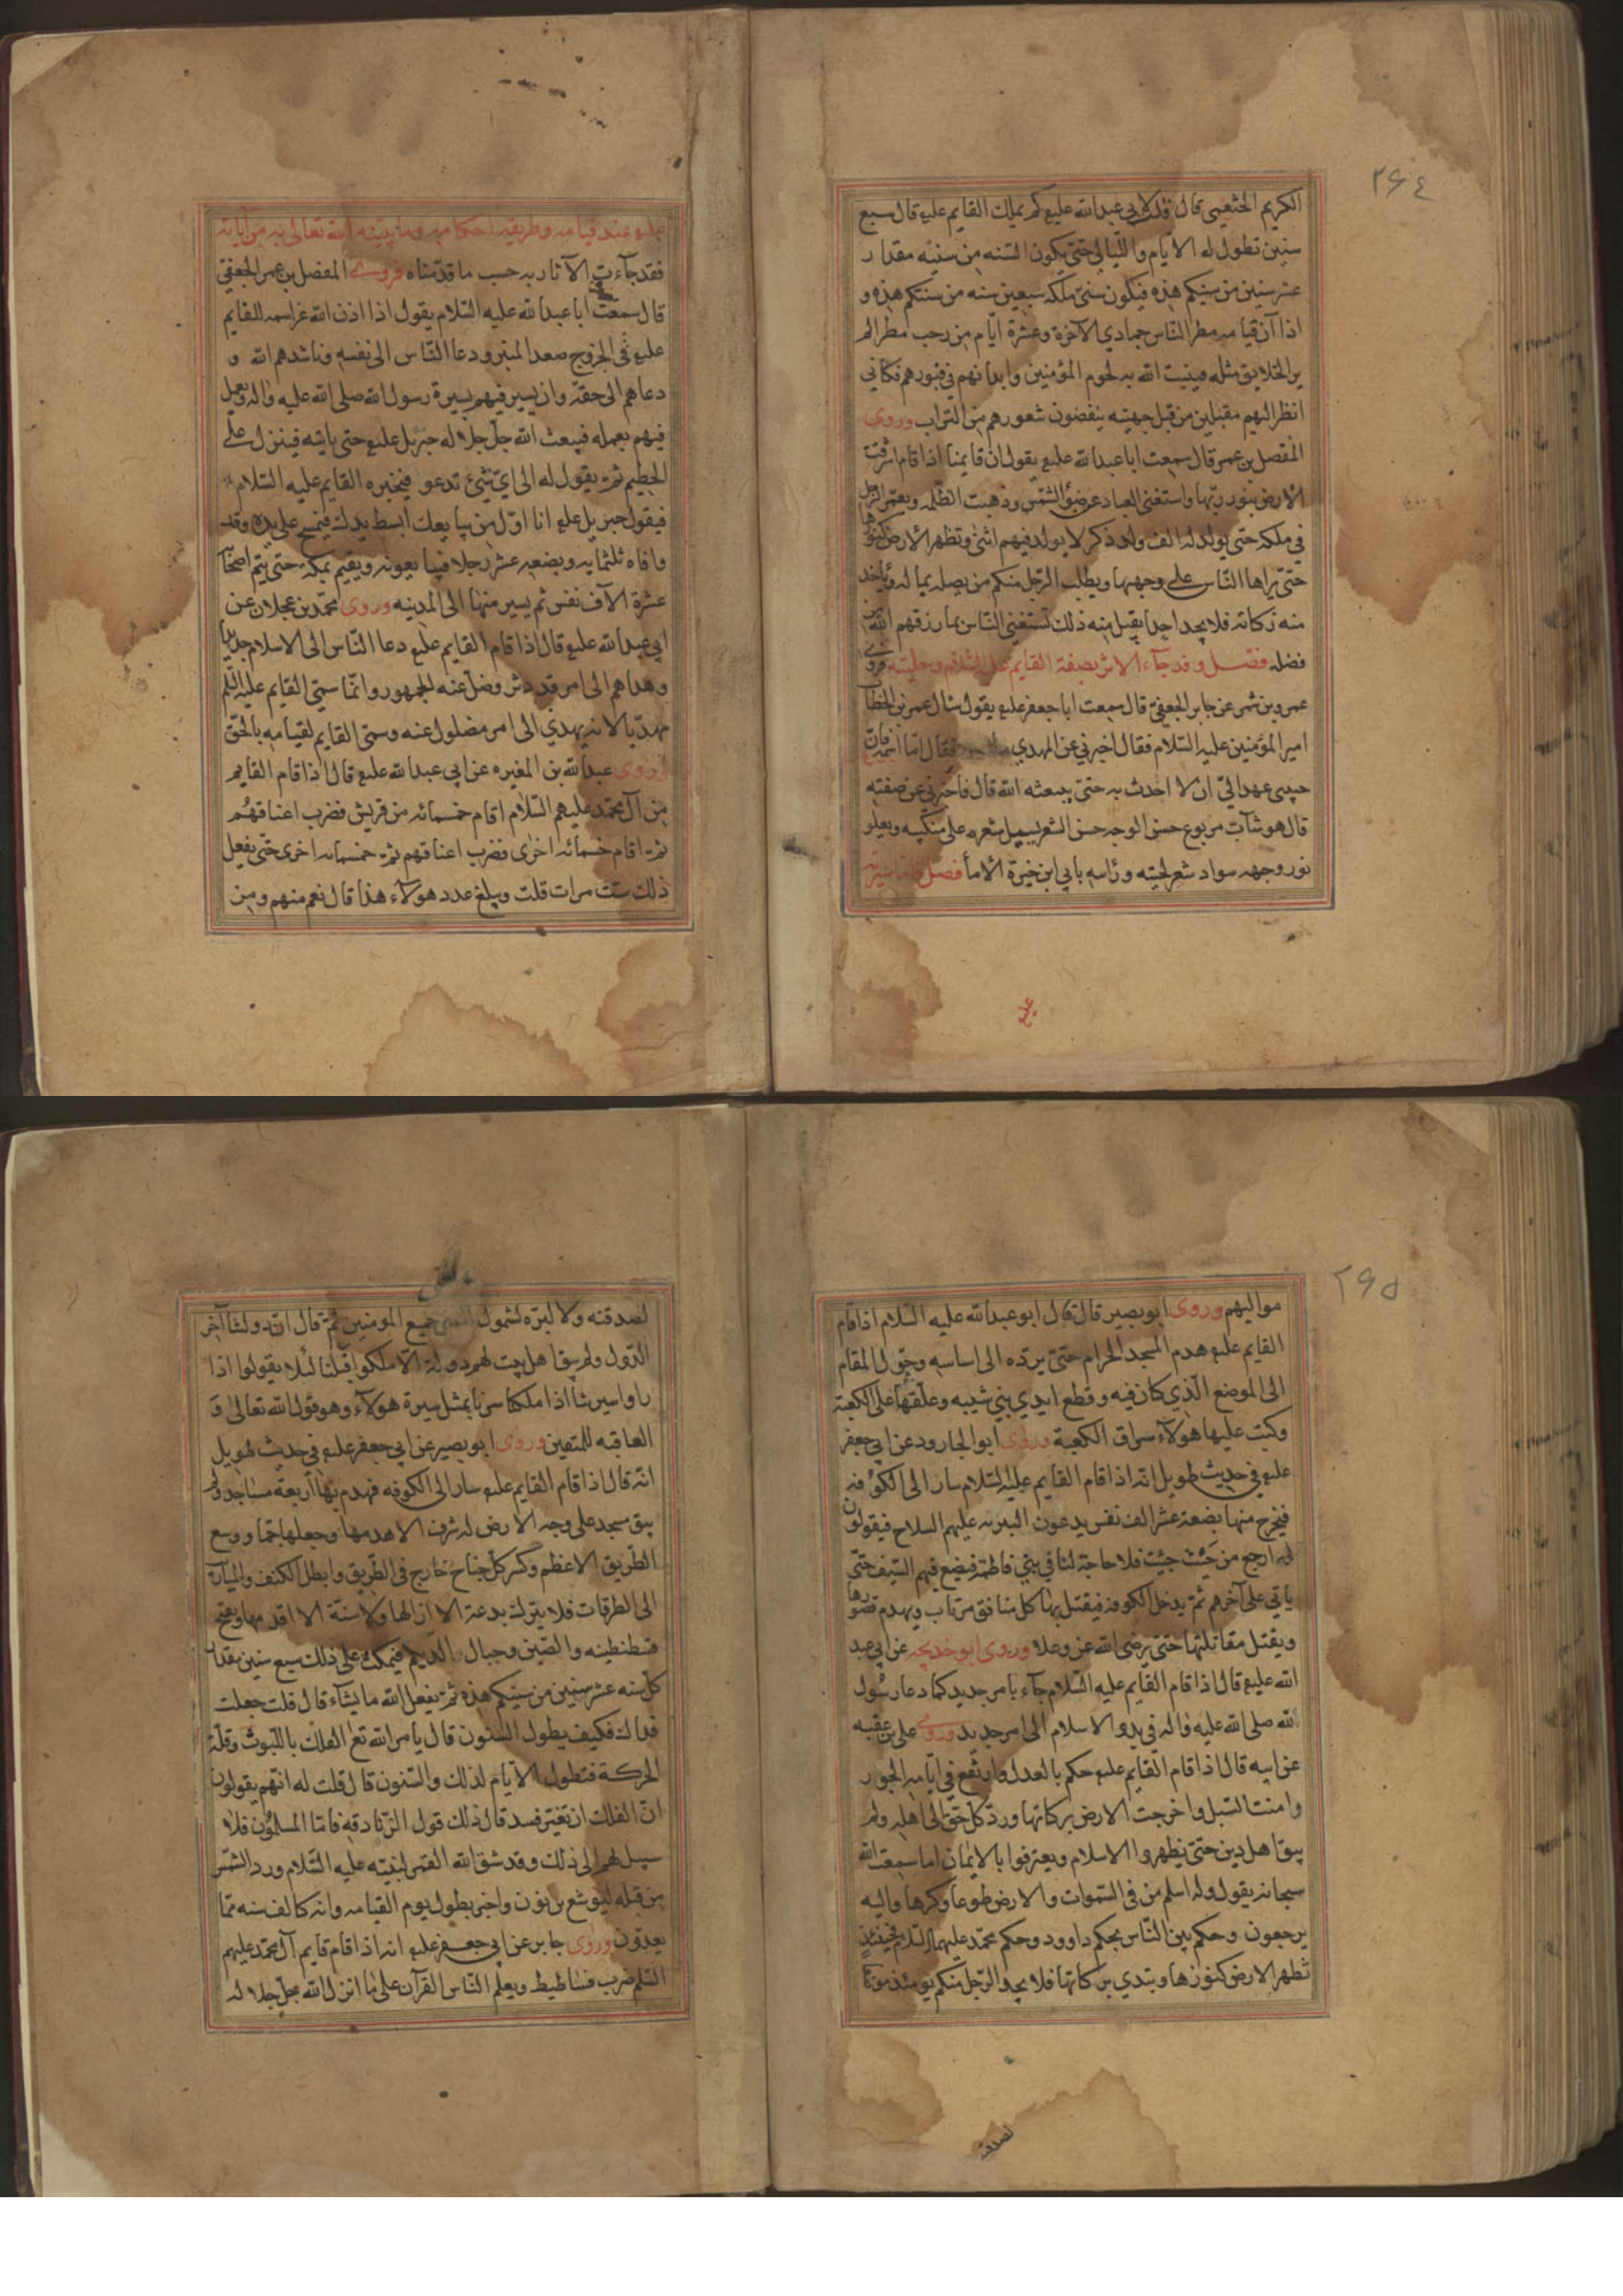 ۲۶٤
الكريم الخثعمي قال قلت لابي عبدالله عليع كم يملك القايم عليع قال سبع
سنين تطول له الايام والليالي حتى يكون السنه من سنيه مقدار
عشر سنين من سنيكم هذه فيكون سنى ملكه سبعين سنه من سنتكم هذه و
اذا آن قيامه مطر الناس جمادي الآخرة وعشرة ايام من رجب مطرا لم
ير الخلايق مثله فينبت الله به لحوم المؤمنين وابدانهم في قبورهم فكاني
انظر اليهم مقبلين من قبل جهينه ينفضون شعورهم من التراب وروى
المفضل بن عمر قال سمعت اباعبدالله عليع يقول ان قايمنا اذا قام اشرقت
الارض بنور ربها واستغنى العباد عن ضوء الشمس وذهبت الظلمه ويعمر الرجل
في ملكه حتى يولد له الف ولد ذكر لا يولد فيهم انثى وتظهر الارض كنوزها
حتى يراها الناس على وجهها ويطلب الرجل منكم من يصله بماله وياخذ
منه زكاته فلا يجد احدا يقبل منه ذلك تستغنى الناس بما رزقهم الله من
فضله فصل وقد جاء الاثر بصفة القايم عليه السلام وحليته فروى
عمرو بن شمر عن جابر الجعفي قال سمعت اباجعفر عليع يقول سال عمر بن الخطاب
امير المؤمنين عليه السلام فقال اخبرني عن المهدي فقال اما اسمه فان
حبيبى عهد الىّ ان لا احدث به حتى يبعثه الله قال فاخبرني عن صفته
قال هو شاب مربوع حسن الوجه حسن الشعر يسيل شعره على منكبيه ويعلو
نور وجهه سواد شعر لحيته وراسه بابي ابن خيرة الاما فصل فاما سيرته
عليع
عليع عند قيامه وطريقه احكامه وما يبينه الله تعالى به من آياته
فقد جاءت الآثار به حسب ما قدمناه فروى المفضل بن عمر الجعفي
قال سمعت اباعبدالله عليه السلام يقول اذا اذن الله عز اسمه للقايم
عليع في الخروج صعد المنبر ودعا الناس الى نفسه وناشدهم الله و
دعاهم الى حقه وان يسير فيهم بسيرة رسول الله صلى الله عليه واله ويعمل
فيهم بعمله فيبعث الله جل جلاله جبريل عليع حتى ياتيه فينزل على
الحطيم ثم يقول له الى اي شئ تدعو فيخبره القايم عليه السلام
فيقول جبريل عليع انا اول من يبايعك ابسط يدك فيمسح على يده وقد
وافاه ثلثمايه وبضعه عشر رجلا فيبايعونه ويقيم بمكه حتى يتم اصحابه
عشرة الآف نفس ثم يسير منها الى المدينه وروى محمد بن عجلان عن
ابي عبدالله عليع قال اذا قام القايم عليع دعا الناس الى الاسلام جديدا
وهداهم الى امر قد دثر وضل عنه الجمهور وانما سمى القايم عليه السلم
مهديا لانه يهدي الى امر مضلول عنه وسمى القايم لقيامه بالحق
وروى عبدالله بن المغيره عن ابي عبدالله عليع قال اذا قام القايم
من آل محمد عليهم السلام اقام خمسمائه من قريش فضرب اعناقهم
ثم اقام خمسمائه اخرى فضرب اعناقهم ثم خمسمائه اخرى حتى يفعل
ذلك ست مرات قلت ويبلغ عدد هولاء هذا قال نعم منهم ومن
۲۶۵
مواليهم وروى ابو بصير قال قال ابوعبدالله عليه السلام اذا قام
القايم عليع هدم المسجد الحرام حتى يرده الى اساسه وحول المقام
الى الموضع الذي كان فيه وقطع ايدي بني شيبه وعلقها على الكعبة
وكتب عليها هولاء سراق الكعبة وروى ابو الجارود عن ابي جعفر
عليع في حديث طويل انه اذا قام القايم عليه السلام سار الى الكوفه
فيخرج منها بضعة عشر الف نفس يدعون البتريه عليهم السلاح فيقولون
له ارجع من حيث جيت فلا حاجة لنا في بني فاطمة فيضع فيهم السيف حتى
ياتي على آخرهم ثم يدخل الكوفه فيقتل بها كل منافق مرتاب ويهدم قصورها
ويقتل مقاتلتها حتى يرضى الله عز وعلا وروى ابو خديجه عن ابي عبد
الله عليع قال اذا قام القايم عليه السلام جاء بامر جديد كما دعا رسول
الله صلى الله عليه واله في بدو الاسلام الى امر جديد وروى علي بن عقبه
عن ابيه قال اذا قام القايم عليع حكم بالعدل وارتفع في ايامه الجور
وامنت السبل واخرجت الارض بركاتها ورد كل حق الى اهله ولم
يبق اهل دين حتى يظهروا الاسلام ويعترفوا بالايمان اما سمعت الله
سبحانه يقول وله اسلم من في السموات والارض طوعا وكرها واليه
يرجعون وحكم بين الناس بحكم داوود وحكم محمد عليهما السلام فحينئذ
تظهر الارض كنوزها وتبدي بركاتها فلا يجد الرجل منكم يومئذ موضعا
لصدقته
لصدقته ولا لبره لشمول الغنى جميع المومنين ثم قال ان دولتنا آخر
الدول ولم يبق اهل بيت لهم دولة الا ملكوا قبلنا لئلا يقولوا اذا
راوا سيرتنا اذا ملكنا سرنا بمثل سيرة هولاء وهو قول الله تعالى و
العاقبه للمتقين وروى ابو بصير عن ابي جعفر عليع في حديث طويل
انه قال اذا قام القايم عليع سار الى الكوفه فهدم بها اربعة مساجد ولم
يبق مسجد على وجه الارض له شرف الا هدمها وجعلها جما ووسع
الطريق الاعظم وكسر كل جناح خارج في الطريق وابطل الكنف والميازيب
الى الطرقات فلا يترك بدعة الا ازالها ولا سنة الا اقامها ويفتح
قسطنطينه والصين وجبال الديلم فيمكث على ذلك سبع سنين مقدار
كل سنه عشر سنين من سنيكم هذه ثم يفعل الله ما يشاء قال قلت جعلت
فداك فكيف يطول السنون قال يامر الله تع الفلك باللبوث وقلة
الحركة فتطول الايام لذلك والسنون قال قلت له انهم يقولون
ان الفلك ان تغير فسد قال ذلك قول الزنادقه فاما المسلمون فلا
سبيل لهم الى ذلك وقد شق الله القمر لنبيه عليه السلام ورد الشمس
من قبله ليوشع بن نون واخبر بطول يوم القيامه وانه كالف سنه مما
يعدون وروى جابر عن ابي جعفر عليع انه اذا قام قايم آل محمد عليهم
السلم ضرب فساطيط ويعلم الناس القرآن على ما انزل الله جل جلاله